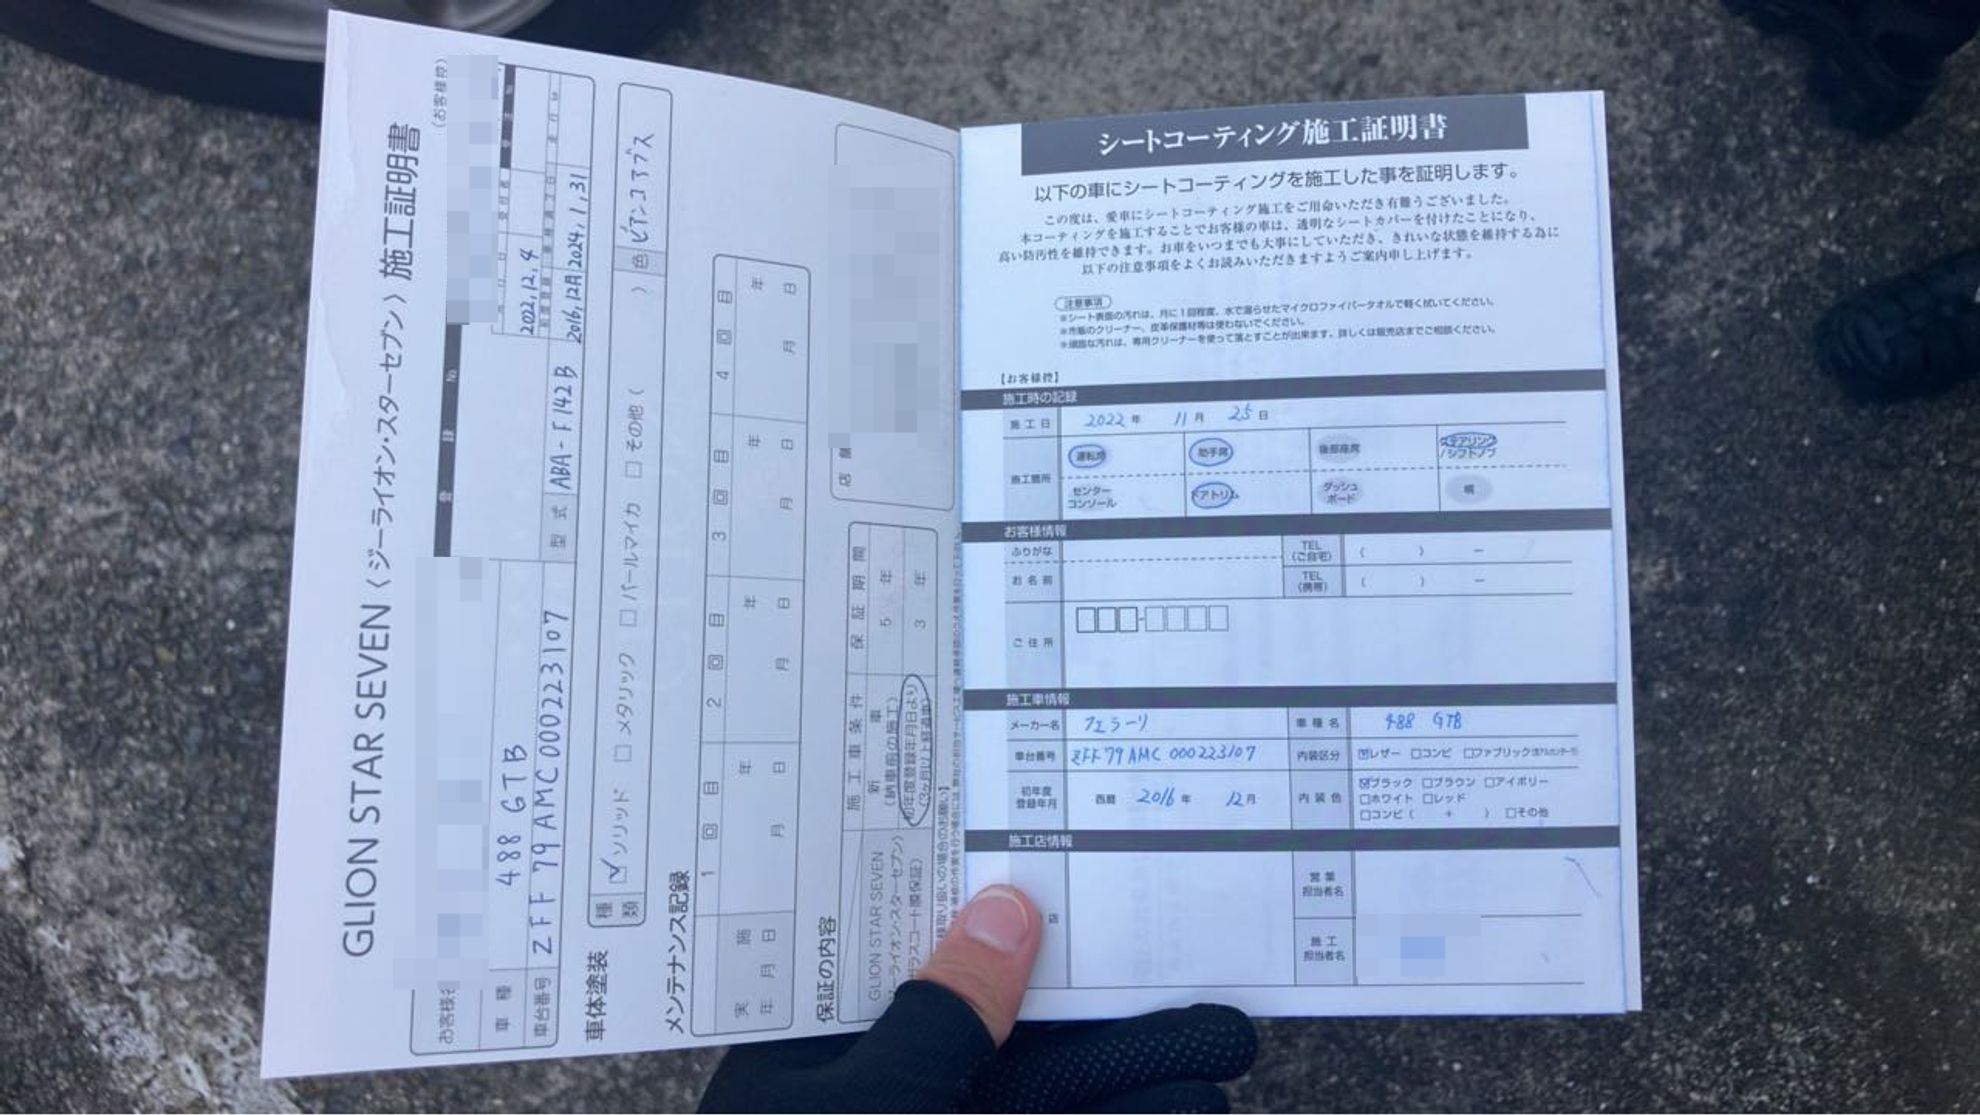 GLION STAR SEVEN〈ジーライオン・スターセブン〉施工証明書
(お客様控)
登録No
2022.12.4
車種 488 GTB
2016.12月 2024.1.31
車台番号 ZFF79AMC000223107 型式 ABA-F142B
車体塗装
種類 ☑ソリッド □メタリック □パールマイカ □その他( ) 色 ビアンコアブス
メンテナンス記録
1回目 2回目 3回目 4回目
実施年月日 年 月 日 年 月 日 年 月 日 年 月 日
保証の内容
施工車条件 保証期間
GLION STAR SEVEN
新車
(納車前の施工)
5年
初年度登録年月日より
(3ヶ月以上経過車)
3年
店舗
シートコーティング施工証明書
以下の車にシートコーティングを施工した事を証明します。
この度は、愛車にシートコーティング施工をご用命いただき有難うございました。
本コーティングを施工することでお客様の車は、透明なシートカバーを付けたことになり、
高い防汚性を維持できます。お車をいつまでも大事にしていただき、きれいな状態を維持する為に
以下の注意事項をよくお読みいただきますようご案内申し上げます。
注意事項
※シート表面の汚れは、月に1回程度、水で湿らせたマイクロファイバータオルで軽く拭いてください。
※市販のクリーナー、皮革保護材等は使わないでください。
※頑固な汚れは、専用クリーナーを使って落とすことが出来ます。詳しくは販売店までご相談ください。
【お客様控】
施工時の記録
施工日 2022年 11月 25日
施工箇所 運転席 助手席 後部座席 ステアリング/シフトノブ
センターコンソール ドアトリム ダッシュボード 幌
お客様情報
ふりがな TEL(ご自宅) ( ) −
お名前 TEL(携帯) ( ) −
ご住所
施工車情報
メーカー名 フェラーリ 車種名 488 GTB
車台番号 ZFF79AMC000223107 内装区分 ☑レザー □コンビ □ファブリック
初年度登録年月 西暦 2016年 12月 内装色 ☑ブラック □ブラウン □アイボリー
□ホワイト □レッド
□コンビ( + ) □その他
施工店情報
店
営業担当者名
施工担当者名